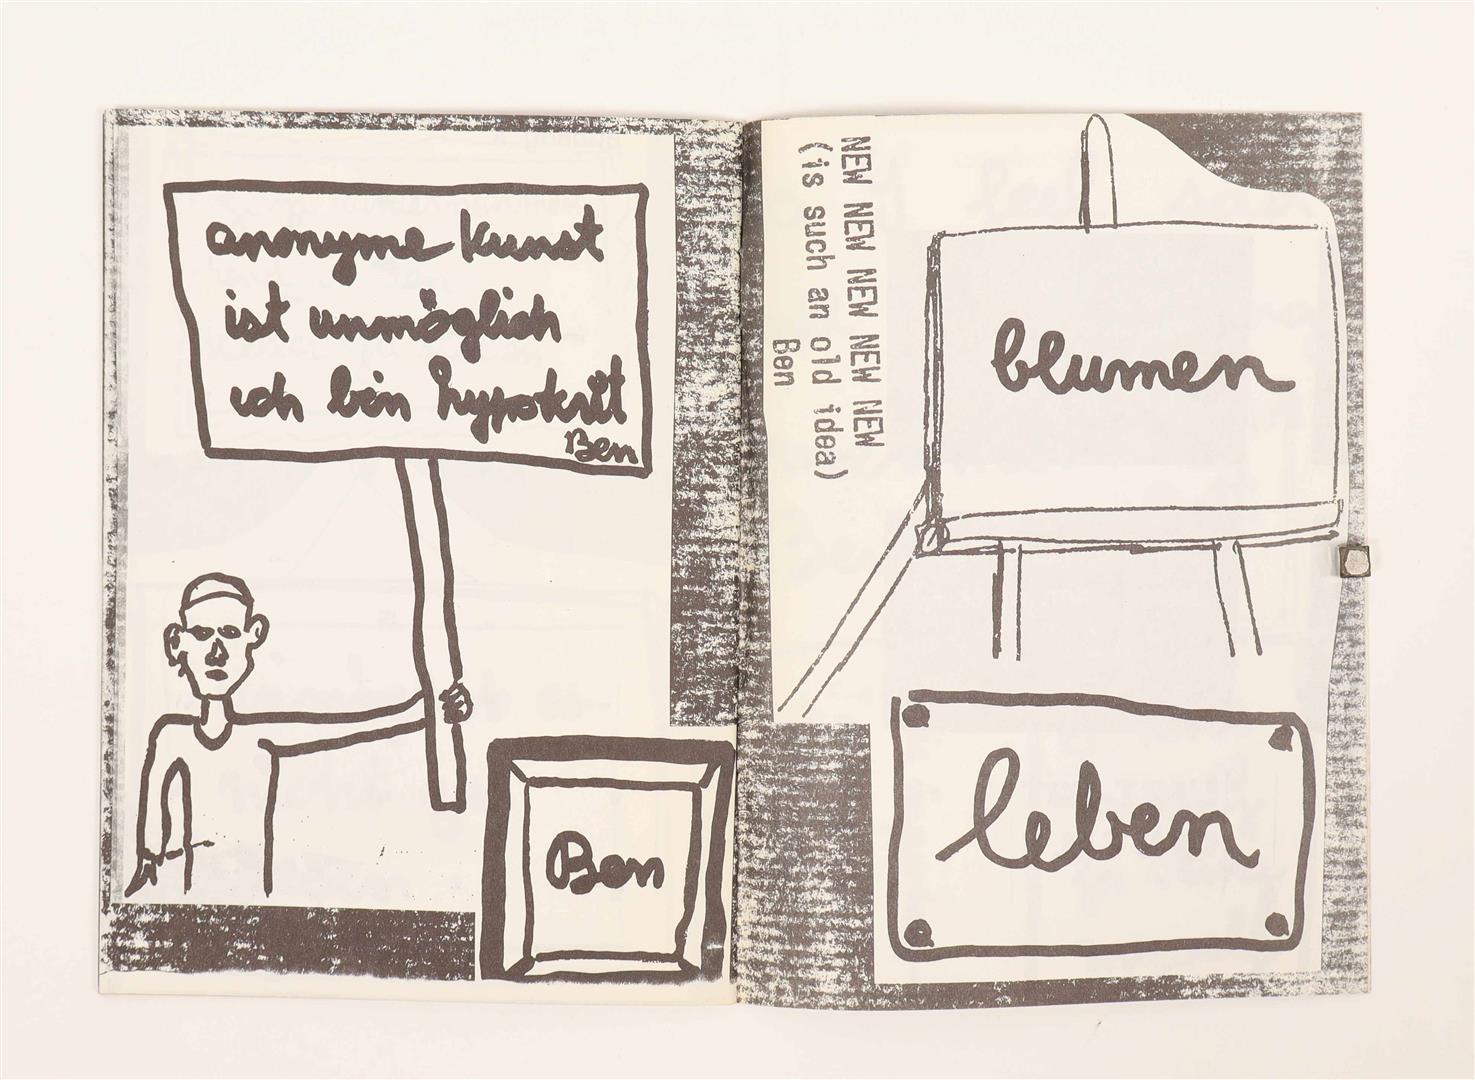 anonyme kunst
ist unmöglich
ich bin hypokrit
Ben
Ben
NEW NEW NEW NEW NEW NEW
(is such an old idea)
Ben
blumen
leben